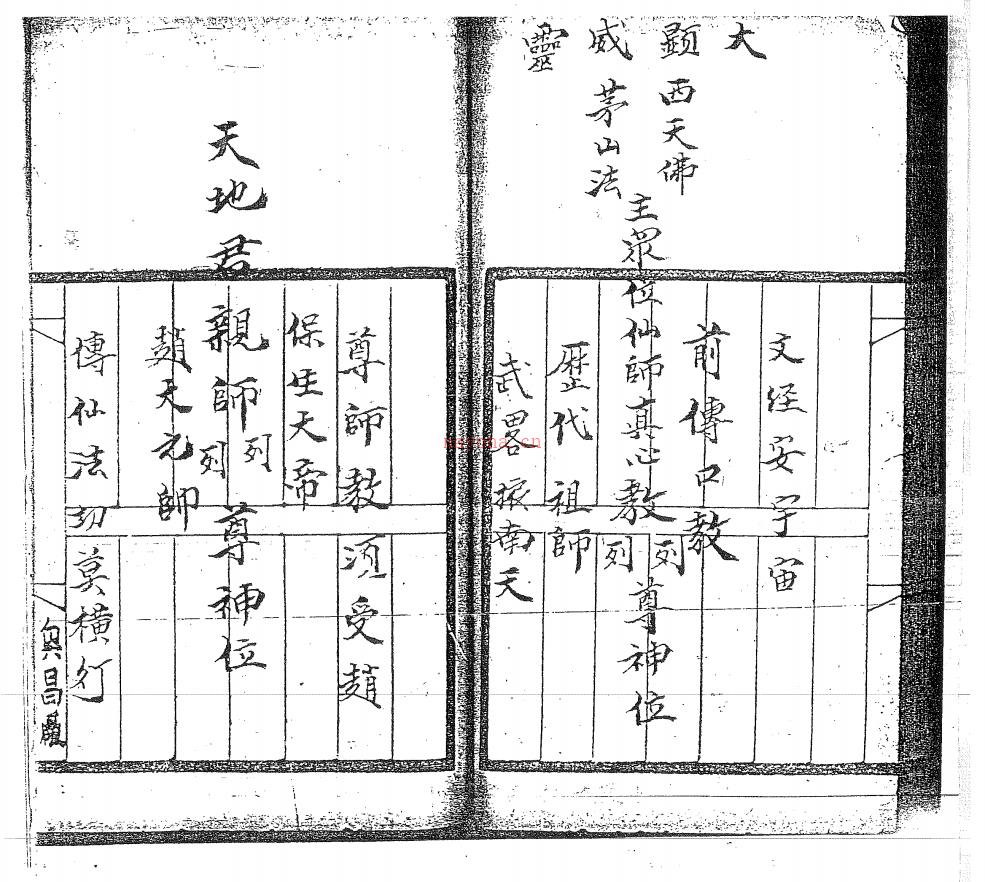 大顕威靈
文経安宇宙
西天佛
前傳口教
主眾位仙師真心教列列尊神位
茅山法
歷代祖師
武畧振南天
尊師教須受趙
保生天帝
天地君親師列列尊神位
趙天元帥
傳仙法切莫横行